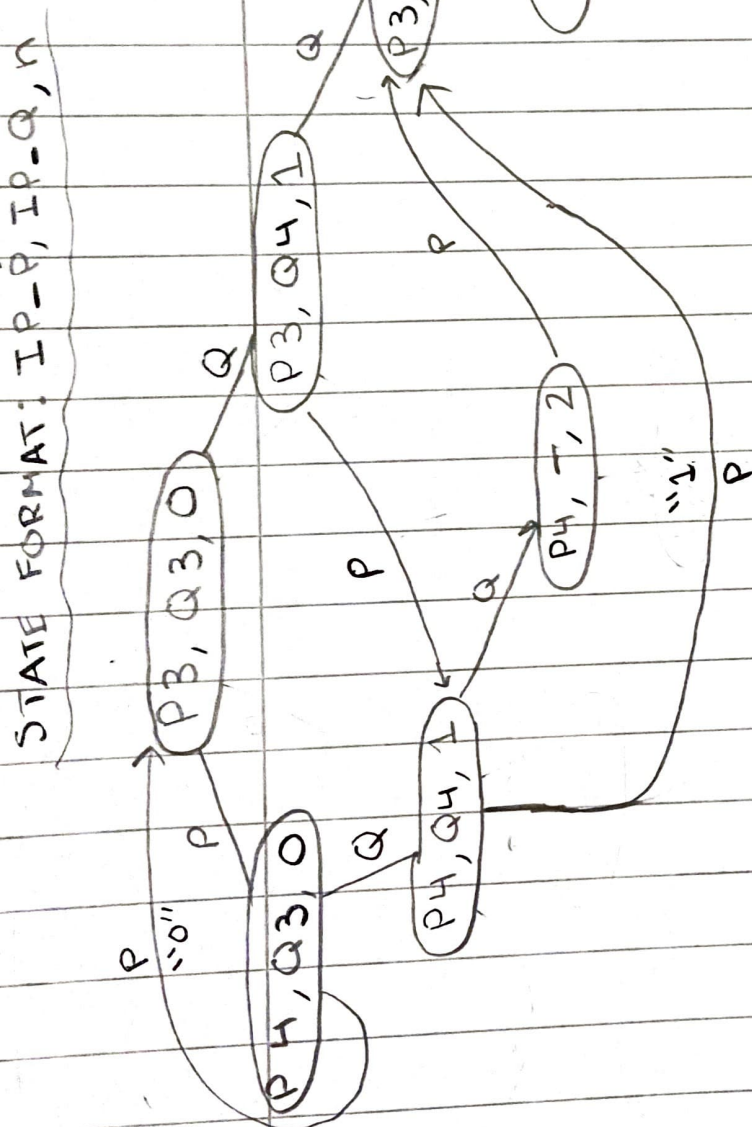 STATE FORMAT: IP_P, IP_Q, n
P3, Q3, 0
P
"0"
P
Q
Q
P4, Q3, 0
P3, Q4, 1
P3,
Q
P
P
P4, Q4, 1
Q
P4, T, 2
"1"
P